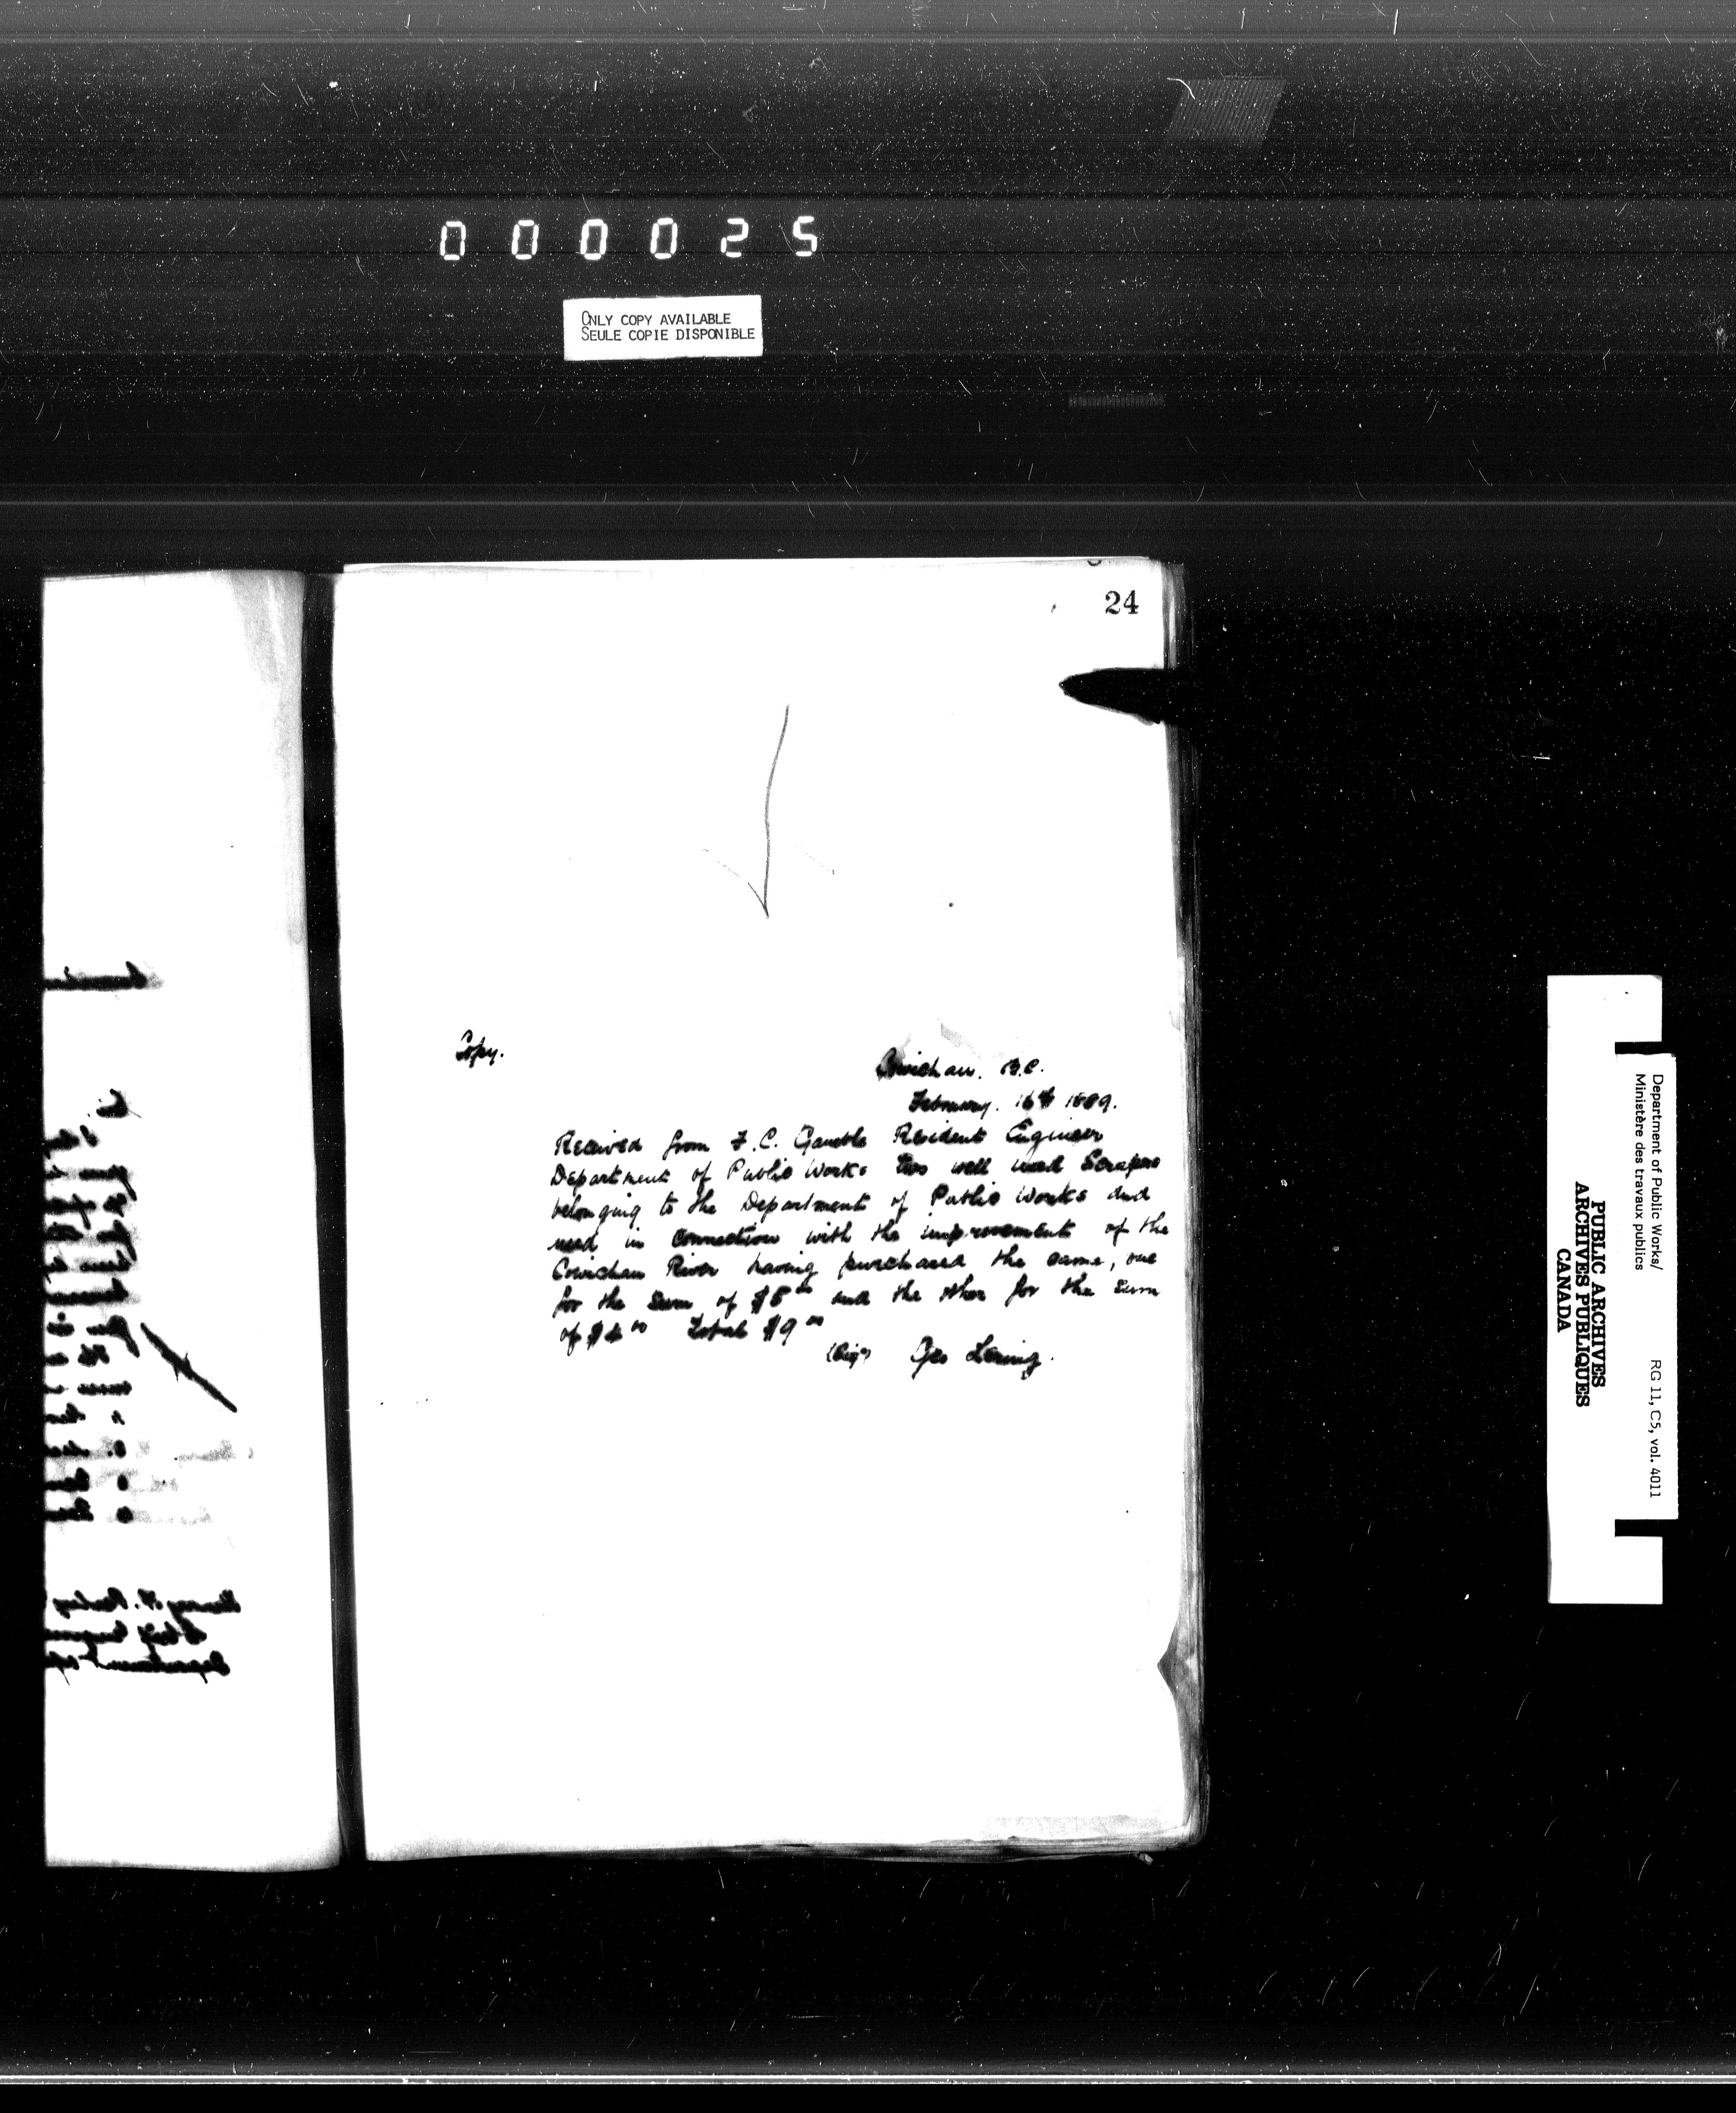 000025
ONLY COPY AVAILABLE
SEULE COPIE DISPONIBLE
24
Copy.
Cowichan. B.C.
February. 16th 1889.
Received from F. C. Gamble Resident Engineer
Department of Public Works two well used Scrapers
belonging to the Department of Public Works and
used in connection with the improvement of the
Cowichan River having purchased the same, one
for the sum of $5 00 and the other for the sum
of $4 00 Total $9 00
Geo
Department of Public Works/
Ministère des travaux publics
RG 11, C5, vol. 4011
PUBLIC ARCHIVES
ARCHIVES PUBLIQUES
CANADA